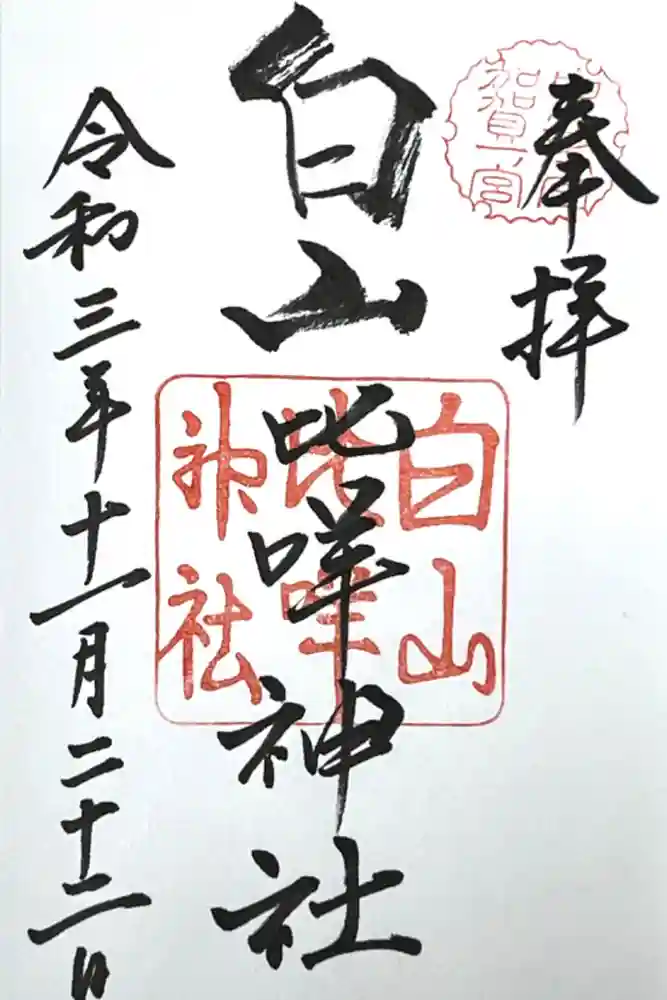 奉拝
加賀一宮
白山比咩神社
白山
比咩
神社
令和三年十一月二十二日